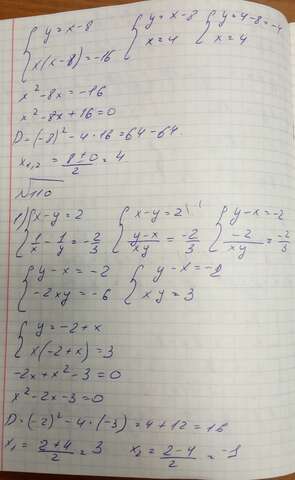 { y = x - 8   { y = x - 8   { y = 4 - 8 = -4
{ x(x - 8) = -16   { x = 4   { x = 4
x² - 8x = -16
x² - 8x + 16 = 0
D = (-8)² - 4·16 = 64 - 64
x₁,₂ = (8 ± 0)/2 = 4
√110
1) { x - y = 2   { x - y = 2   { y - x = -2
{ 1/x - 1/y = -2/3   { (y - x)/xy = -2/3   { -2/xy = -2/3
{ y - x = -2   { y - x = -2
{ -2xy = -6   { xy = 3
{ y = -2 + x
{ x(-2 + x) = 3
-2x + x² - 3 = 0
x² - 2x - 3 = 0
D = (-2)² - 4·(-3) = 4 + 12 = 16
x₁ = (2 + 4)/2 = 3   x₂ = (2 - 4)/2 = -1